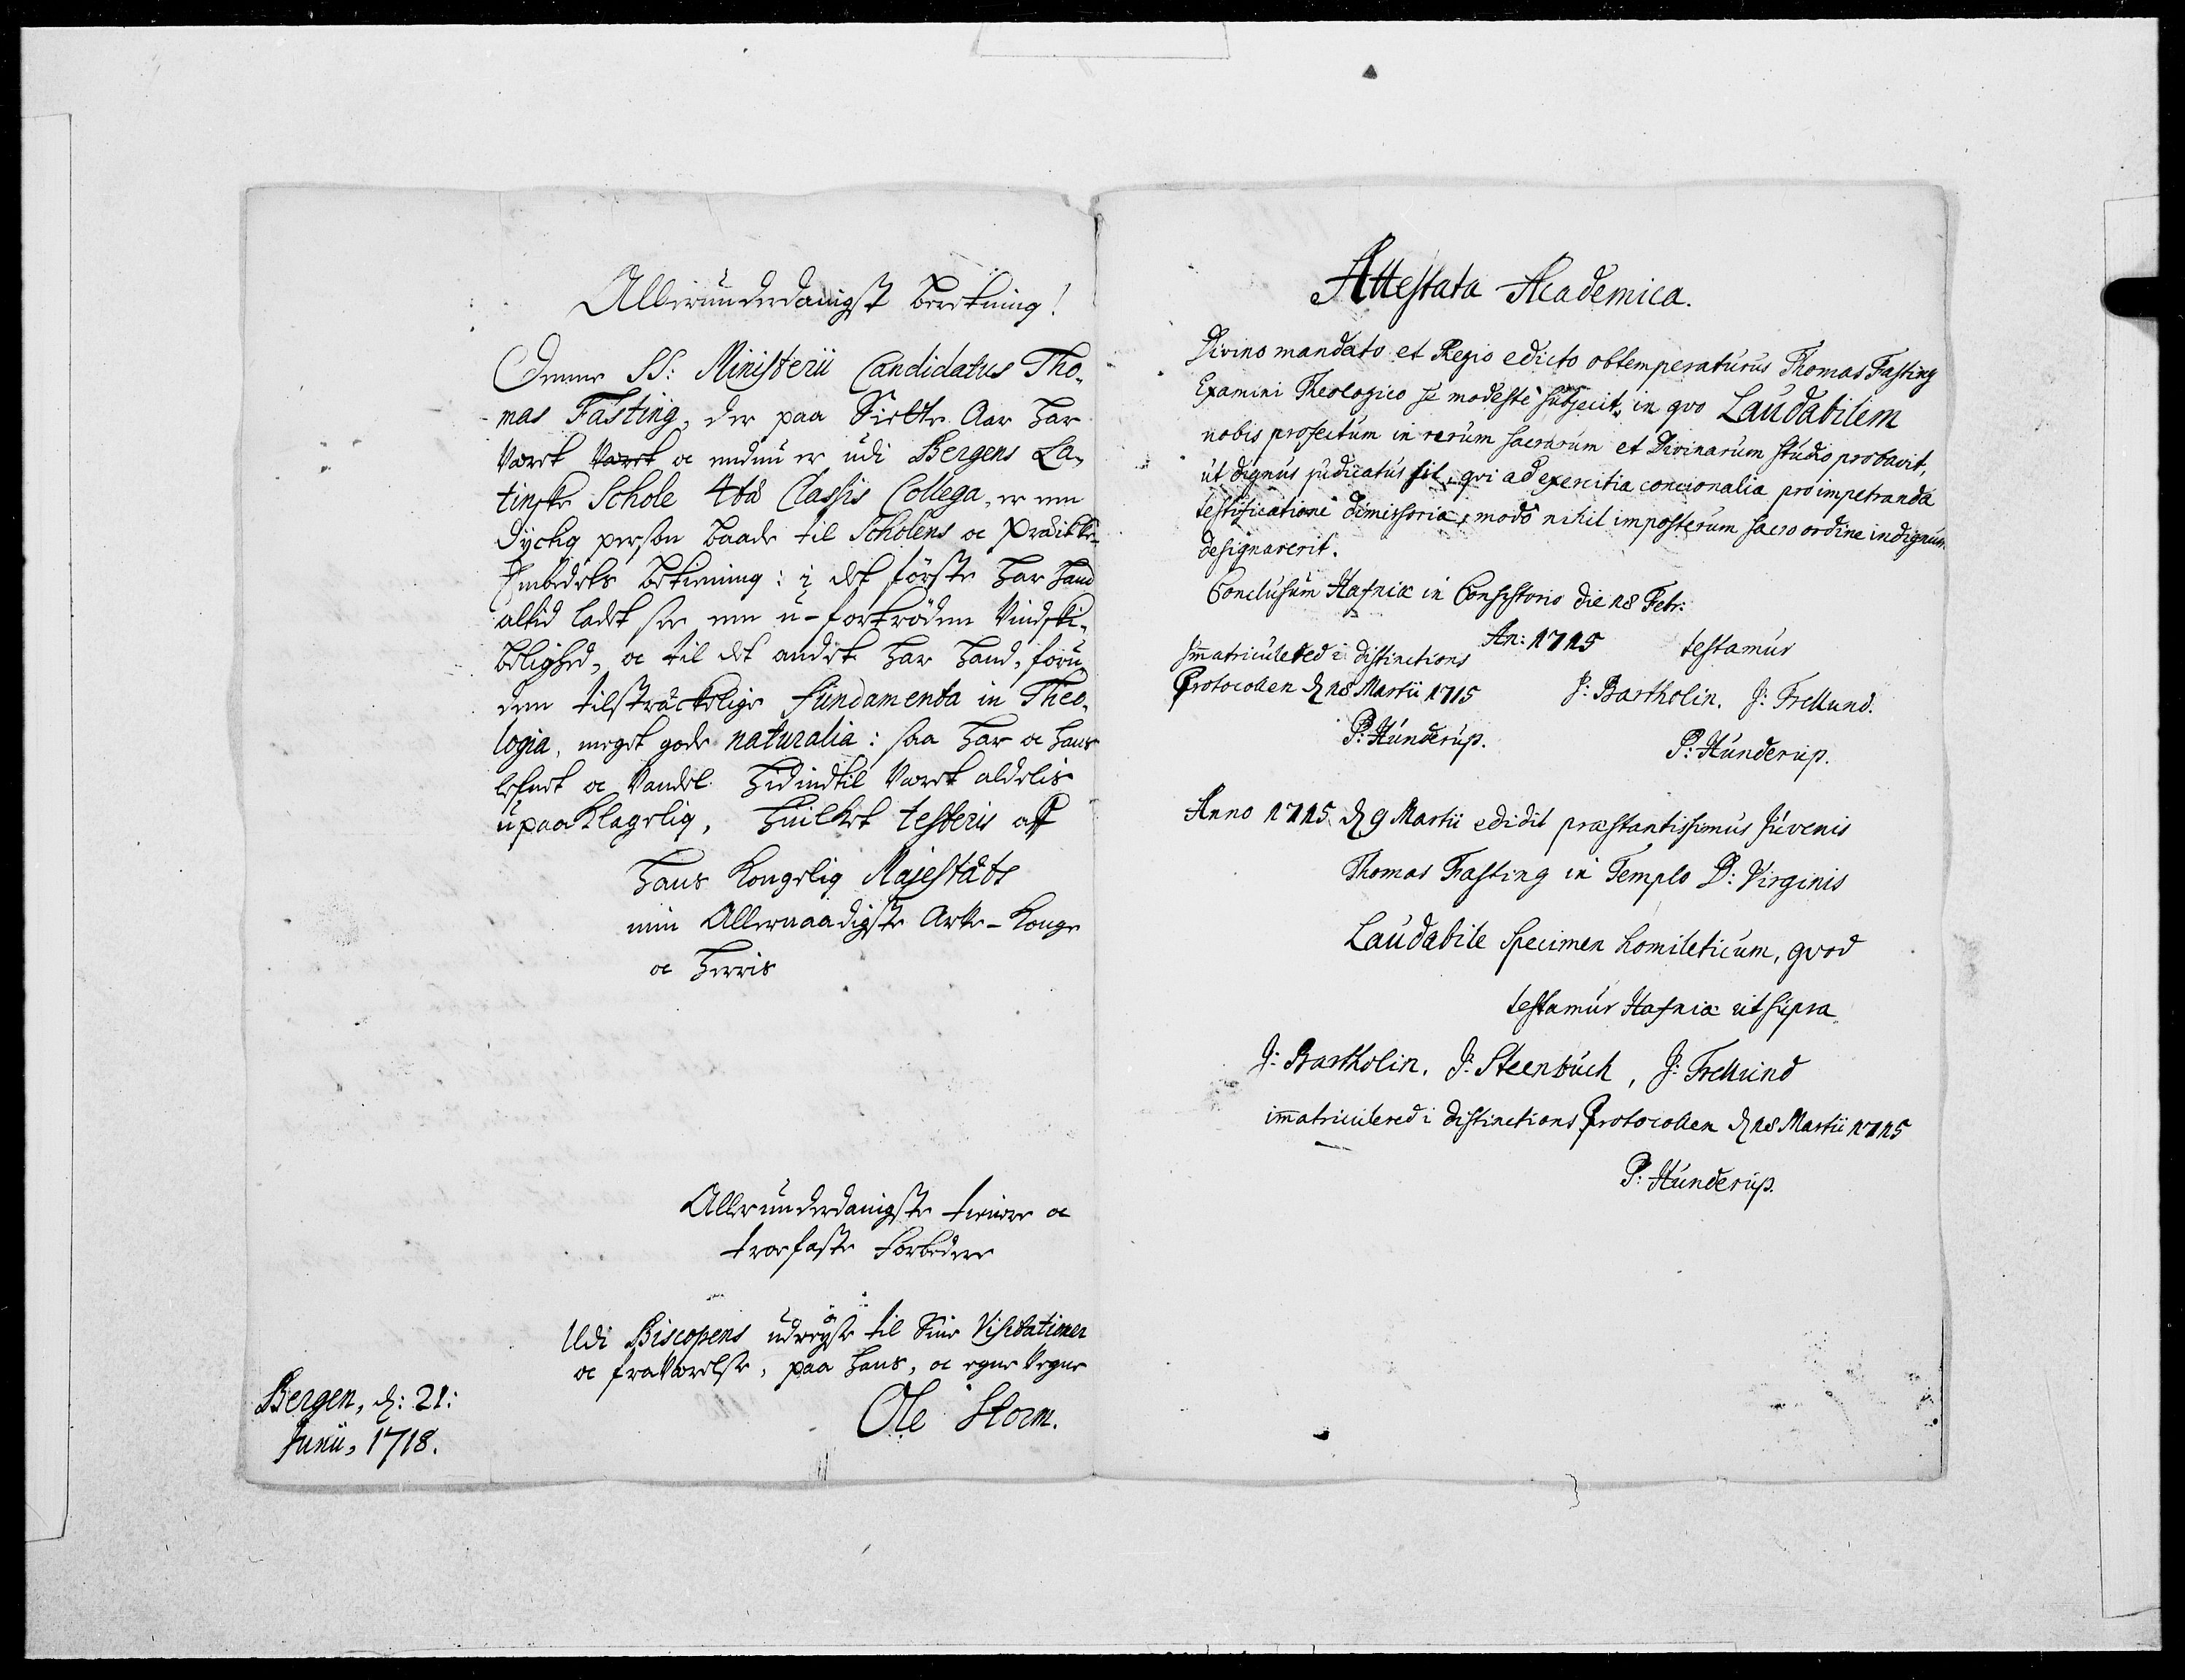 Allerunderdanigst beretning!
Denne SS: Ministerii Candidatus Tho-
mas Fasting, der paa Siette Aar har
været været oc endnu er udi Bergens La-
tinske Schole 4tæ Classis Collega, er en
dyctig person baade til Scholens oc Prædike-
Embedets betiening: i det første har hand
altid ladet see en u-fortrøden Vindski-
belighed, oc til det andet har hand, foru-
den tilstræckelige fundamenta in Theo-
logia, meget gode naturalia: saa har oc hans
lefnet oc Vandel hidindtil været aldelis
upaaklagelig, huilket testeris aff
Hans Kongelig Majestäts
min Allernaadigste Arfve-Konge
oc Herris
Allerunderdanigste tienere oc
troefaste forbedere
Udi Biscopens udreyse til Sine Visitatimer
oc fraværelse, paa hans, oc egne vegne
Ole Storm.
Bergen, d: 21:
Junii, 1718.
Attestata Academica.
Divino mandato et Regio edicto obtemperaturus Thomas Fasting
Examini Theologico se modeste subjecit, in qvo Laudabilem
nobis profectum in rerum sacrarum et Divinarum studio probavit,
ut dignus judicatus sit, qvi ad exercitia concionalia pro impetranda
testificatione dimissoria, modo nihil imposterum sacro ordine indignum
designaverit.
Conclusum Hafniæ in Consistorio die 18 Febr:
An: 1715 testamur
Immatriculered i distinctions
Protocollen d 18 Martii 1715
J: Bartholin. J: Trellund.
P: Hunderup.
P: Hunderup.
Anno 1715 d 9 Martii edidit præstantissimus Juvenis
Thomas Fasting in Templo D: Virginis
Laudabile specimen homileticum, qvod
testamur Hafniæ ut supra
J: Bartholin. J: Steenbuch, J: Trellund
imatriculered i distinctions Protocollen d 18 Martii 1715
P: Hunderup.